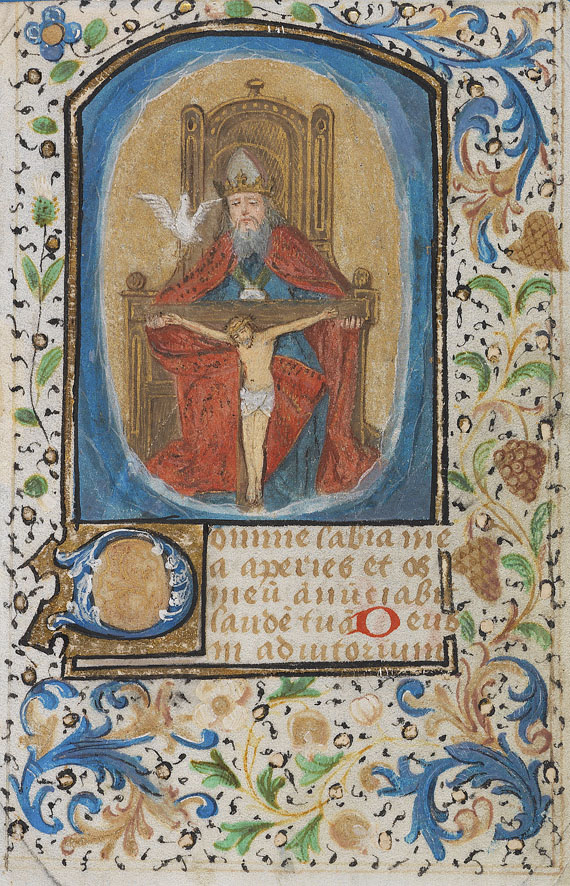 Domine labia me
a aperies et os
meū ānūciabi
laudē tuā Deus
in adiutorium